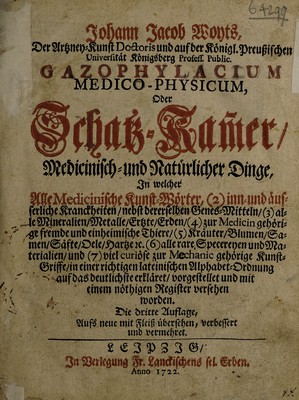 64299
Johann Jacob Woyts,
Der Artzney-Kunst Doctoris und auf der Königl. Preußischen
Universität Königsberg Profess. Public.
GAZOPHYLACIUM
MEDICO-PHYSICUM,
Oder
Schatz-Kam̃er/
Medicinisch- und Natürlicher Dinge,
In welcher
Alle Medicinische Kunst-Wörter, (2) inn- und äus-
serliche Kranckheiten/ nebst dererselben Genes-Mitteln/ (3) al-
le Mineralien/ Metalle/ Ertzte/ Erden/ (4) zur Medicin gehöri-
ge fremde und einheimische Thiere/ (5) Kräuter/ Blumen/ Sa-
men/ Säfte/ Oele/ Hartze ꝛc. (6) alle rare Specereyen und Ma-
terialien/ und (7) viel curiöse zur Mechanic gehörige Kunst-
Griffe/ in einer richtigen lateinischen Alphabet-Ordnung
auf das deutlichste erkläret/ vorgestellet und mit
einem nöthigen Register versehen
worden.
Die dritte Auflage,
Aufs neue mit Fleiß übersehen, verbessert
und vermehret.
LEIPZIG/
In Verlegung Fr. Lanckischens sel. Erben.
Anno 1722.